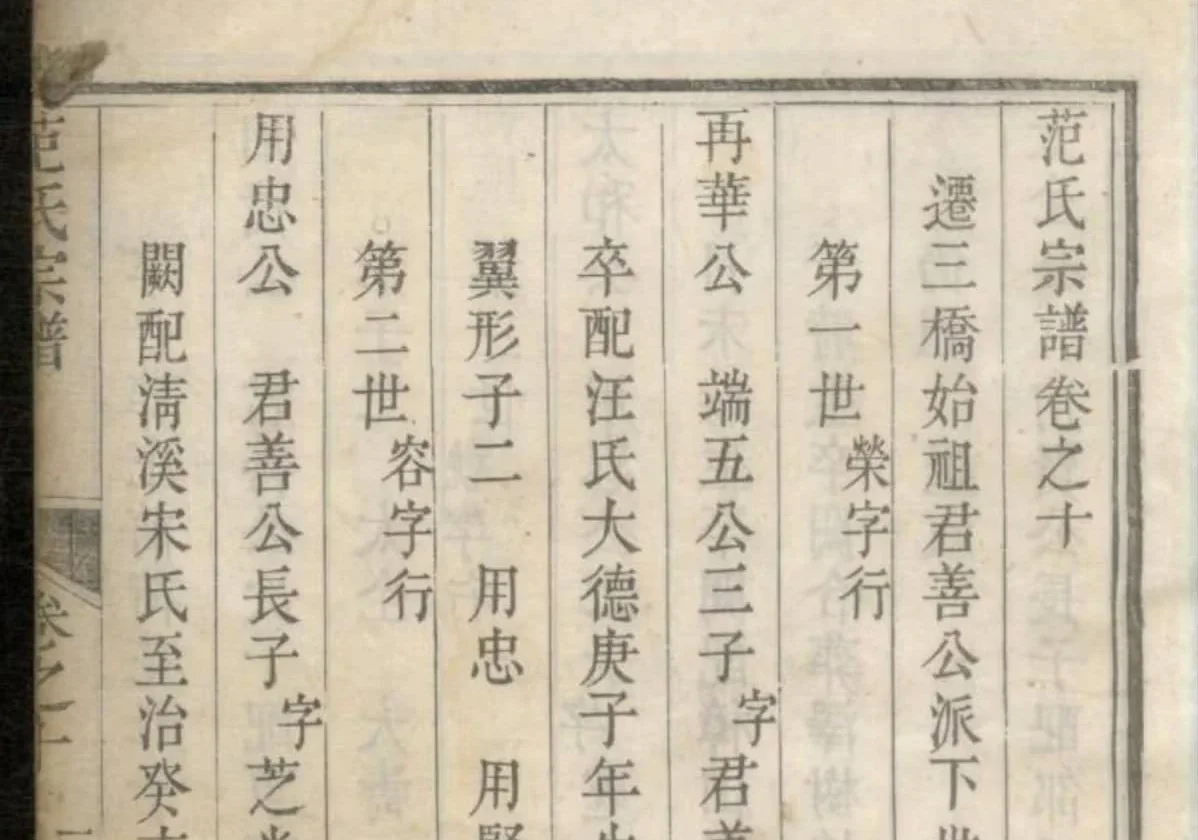 范氏宗譜卷之十
遷三橋始祖君善公派下世
第一世 榮字行
再華公 端五公三子字君善
卒配汪氏大德庚子年
翼形子二 用忠 用賢
第二世 容字行
用忠公 君善公長子字芝
闕配淸溪宋氏至治癸
范氏宗譜 卷之十